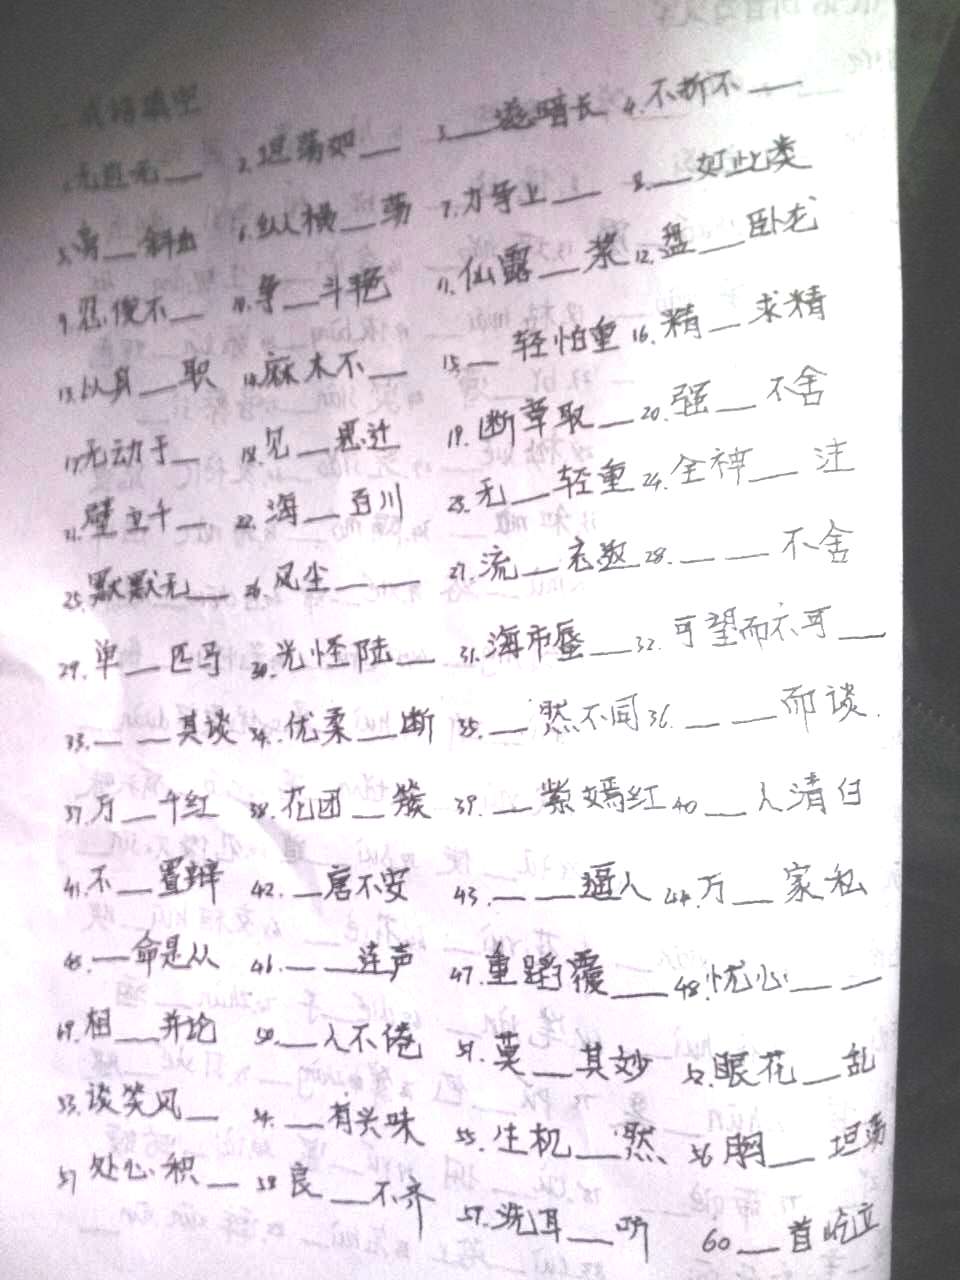 成语填空
1.无边无__ 2.坦荡如__ 3.__滋暗长 4.不折不__
5.旁__斜出 6.纵横__荡 7.力争上__ 8.__如此类
9.忍俊不__ 10.争__斗艳 11.仙露__浆 12.盘__卧龙
13.以身__职 14.麻木不__ 15.__轻怕重 16.精__求精
17.无动于__ 18.见__思迁 19.断章取__ 20.强__不舍
21.壁立千__ 22.海__百川 23.无__轻重 24.全神__注
25.默默无__ 26.风尘__ __ 27.流__忘返 28.__ __不舍
29.单__匹马 30.光怪陆__ 31.海市蜃__ 32.可望而不可__
33.__ __其谈 34.优柔__断 35.__然不同 36.__ __而谈.
37.万__千红 38.花团__簇 39.__紫嫣红 40.__人清白
41.不__置辩 42.__居不安 43.__ __逼人 44.万__家私
45.__命是从 46.__ __连声 47.重蹈覆__ 48.忧心__ __
49.相__并论 50.__人不倦 51.莫__其妙 52.眼花__乱
53.谈笑风__ 54.__有兴味 55.生机__然 56.胸__坦荡
57.处心积__ 58.良__不齐 59.洗耳__听 60.__首屹立